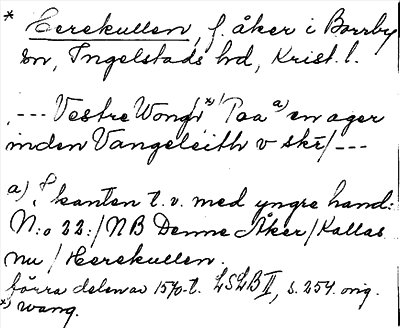 * Herekullen, f. åker i Borrby
sn, Ingelstads hd, Krist. l.
,--- Vestre Wong/ *) Paa a) en ager
inden Vangeleith v skr/---
a) I kanten t. v. med yngre hand:
N:o 22:/NB Denne Åker/Kallas
nu/Herekullen.
förra delen av 1570-t. LSLB II, s. 254. orig.
*) wang.